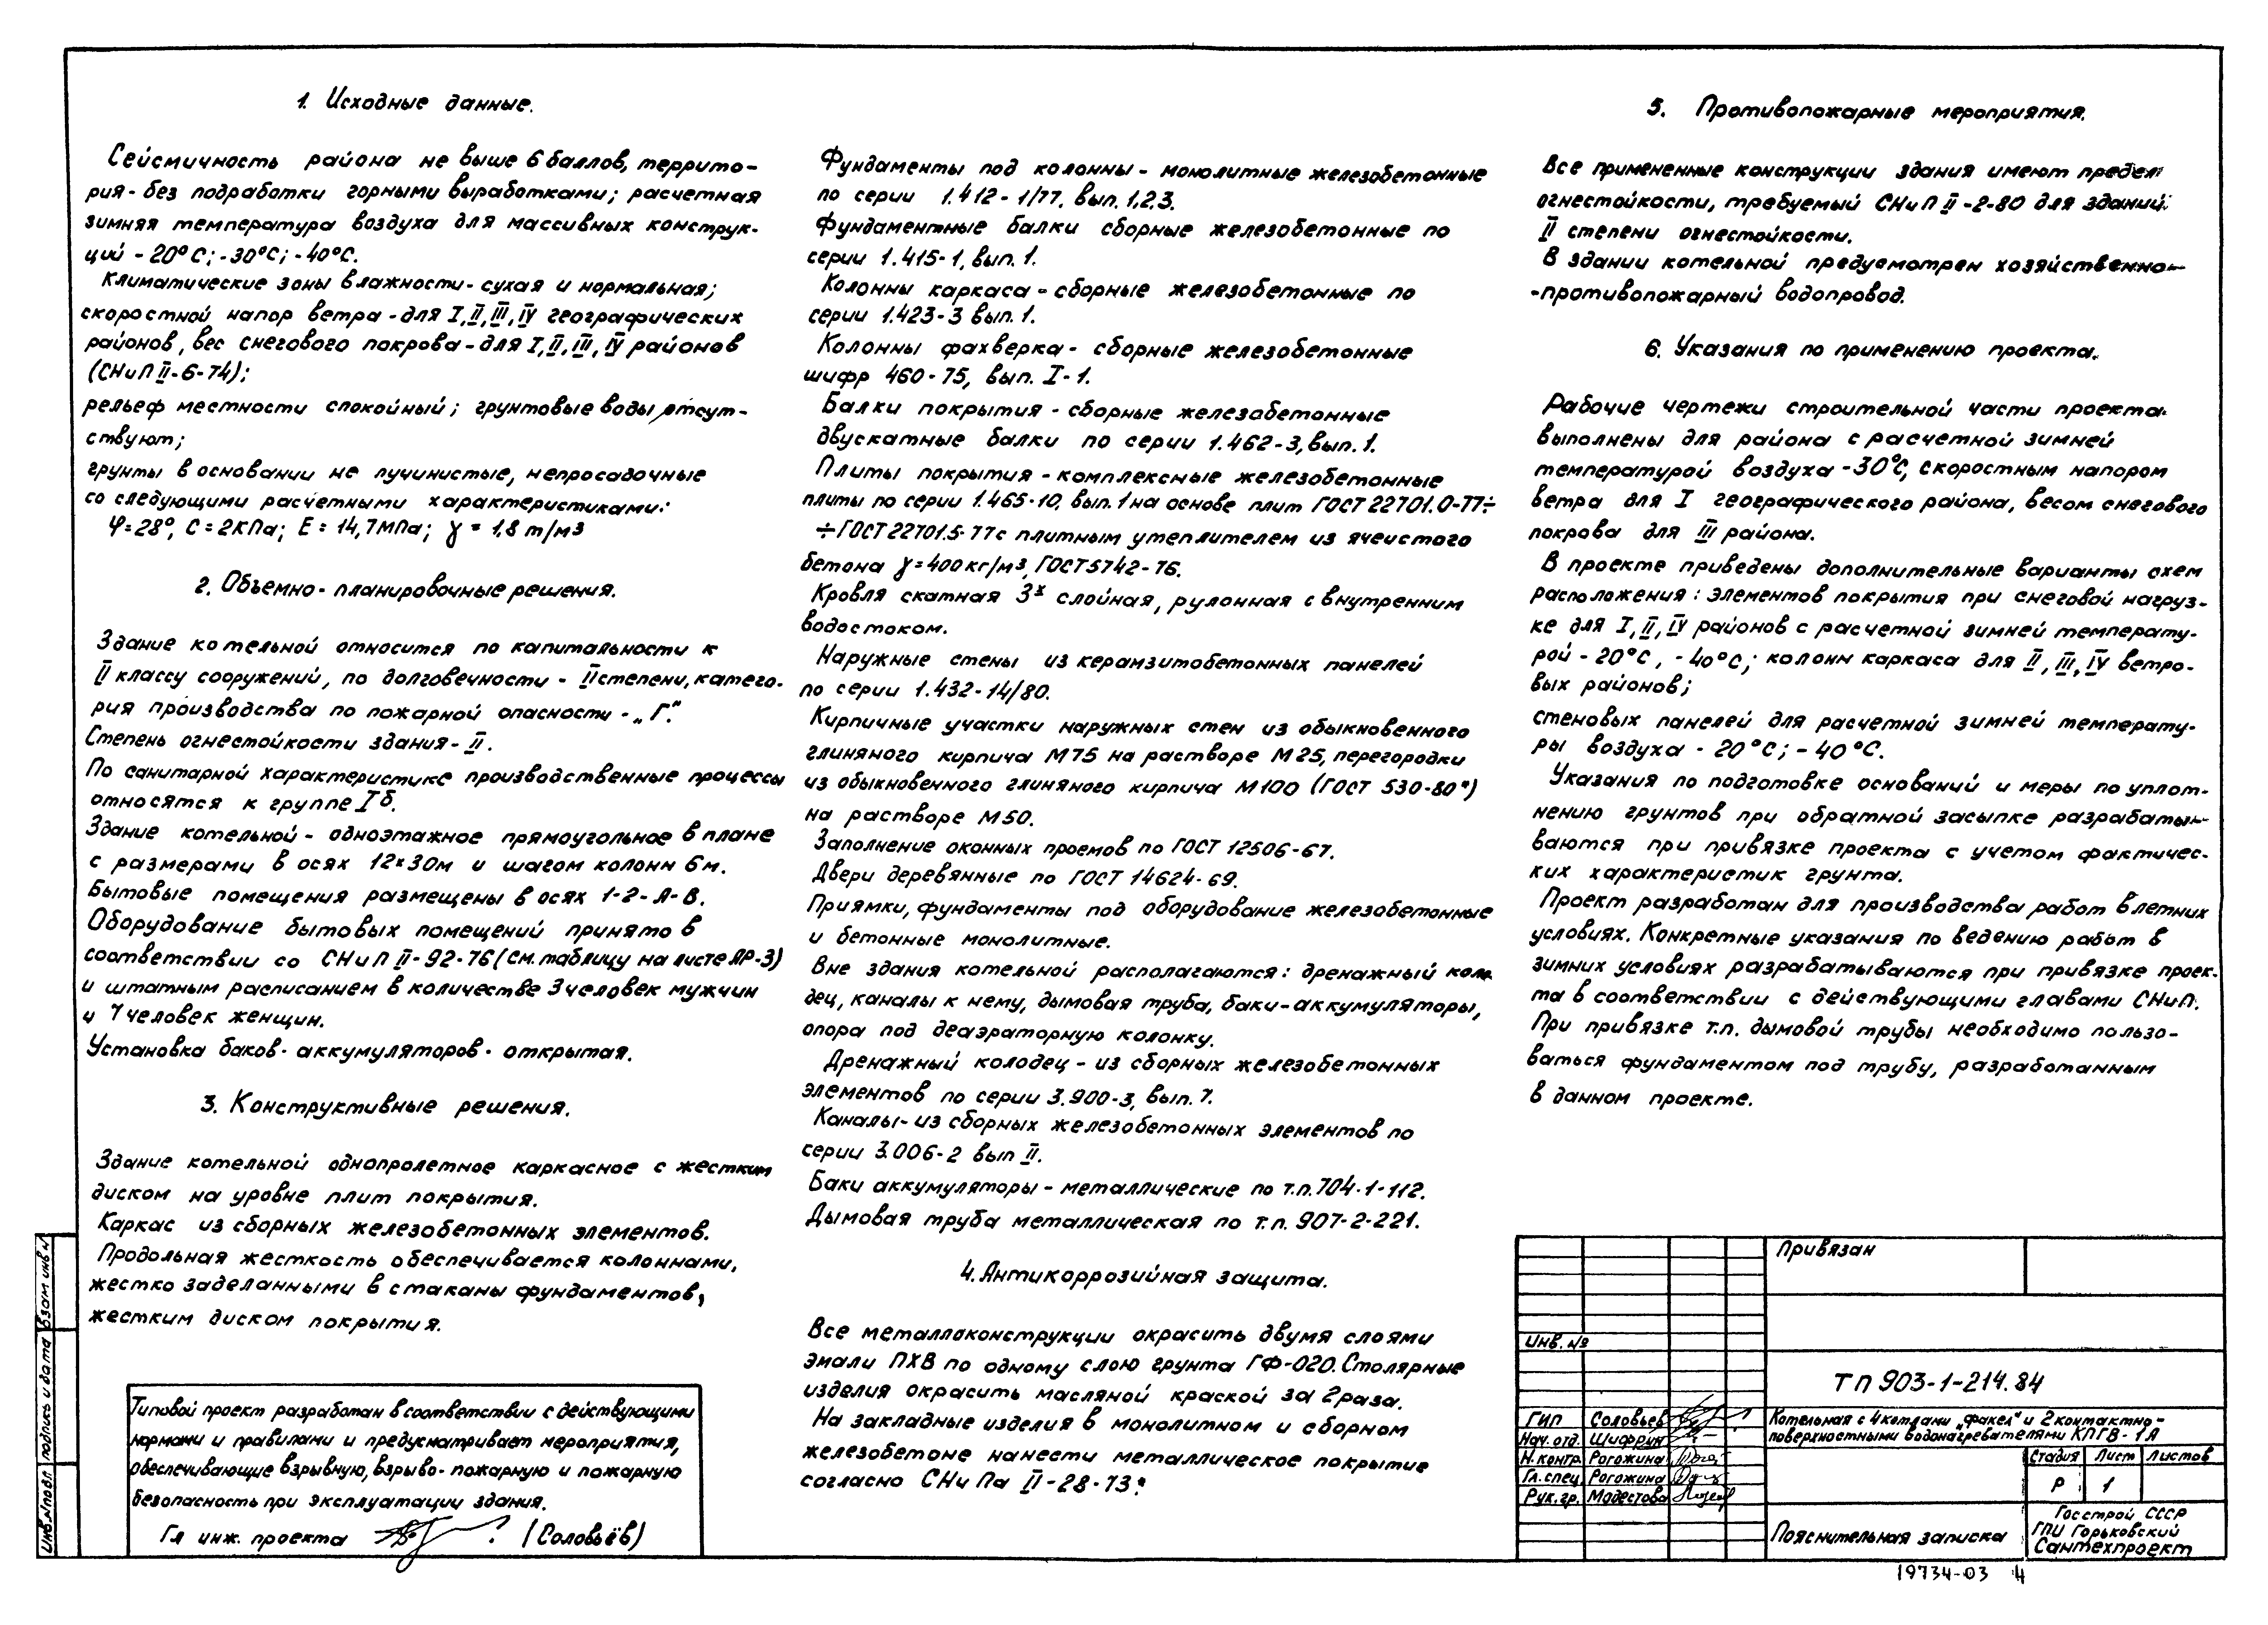 1. Исходные данные.
Сейсмичность района не выше 6 баллов, террито-
рия - без подработки горными выработками; расчетная
зимняя температура воздуха для массивных конструк-
ций - 20°С; -30°С; -40°С.
Климатические зоны влажности - сухая и нормальная;
скоростной напор ветра - для I, II, III, IV географических
районов, вес снегового покрова - для I, II, III, IV районов
(СНиП II-6-74);
рельеф местности спокойный; грунтовые воды отсут-
ствуют;
грунты в основании не пучинистые, непросадочные
со следующими расчетными характеристиками:
φ=28°, С=2КПа; Е=14,7МПа; γ=1,8 т/м³
2. Объемно-планировочные решения.
Здание котельной относится по капитальности к
II классу сооружений, по долговечности - II степени, катего-
рия производства по пожарной опасности - „Г".
Степень огнестойкости здания - II.
По санитарной характеристике производственные процессы
относятся к группе Iб.
Здание котельной - одноэтажное прямоугольное в плане
с размерами в осях 12×30м и шагом колонн 6м.
Бытовые помещения размещены в осях 1-2-А-В.
Оборудование бытовых помещений принято в
соответствии со СНиП II-92-76 (см. таблицу на листе АР-3)
и штатным расписанием в количестве 3 человек мужчин
и 7 человек женщин.
Установка баков-аккумуляторов - открытая.
3. Конструктивные решения.
Здание котельной однопролетное каркасное с жестким
диском на уровне плит покрытия.
Каркас из сборных железобетонных элементов.
Продольная жесткость обеспечивается колоннами,
жестко заделанными в стаканы фундаментов,
жестким диском покрытия.
Типовой проект разработан в соответствии с действующими
нормами и правилами и предусматривает мероприятия,
обеспечивающие взрывную, взрыво-пожарную и пожарную
безопасность при эксплуатации здания.
Гл инж. проекта (Соловьёв)
Фундаменты под колонны - монолитные железобетонные
по серии 1.412-1/77, вып. 1,2,3.
Фундаментные балки сборные железобетонные по
серии 1.415-1, вып. 1.
Колонны каркаса - сборные железобетонные по
серии 1.423-3 вып. 1.
Колонны фахверка - сборные железобетонные
шифр 460-75, вып. I-1.
Балки покрытия - сборные железабетонные
двускатные балки по серии 1.462-3, вып. 1.
Плиты покрытия - комплексные железобетонные
плиты по серии 1.465-10, вып. 1 на основе плит ГОСТ 22701.0-77÷
÷ГОСТ 22701.5-77 с плитным утеплителем из ячеистого
бетона γ=400 кг/м³, ГОСТ 5742-76.
Кровля скатная 3х слойная, рулонная с внутренним
водостоком.
Наружные стены из керамзитобетонных панелей
по серии 1.432-14/80.
Кирпичные участки наружных стен из обыкновенного
глиняного кирпича М75 на растворе М25, перегородки
из обыкновенного глиняного кирпича М100 (ГОСТ 530-80*)
на растворе М50.
Заполнение оконных проемов по ГОСТ 12506-67.
Двери деревянные по ГОСТ 14624-69.
Приямки, фундаменты под оборудование железобетонные
и бетонные монолитные.
Вне здания котельной располагаются: дренажный коло-
дец, каналы к нему, дымовая труба, баки-аккумуляторы,
опора под деаэраторную колонку.
Дренажный колодец - из сборных железобетонных
элементов по серии 3.900-3, вып. 7.
Каналы - из сборных железобетонных элементов по
серии 3.006-2 вып II.
Баки аккумуляторы - металлические по т.п. 704-1-112.
Дымовая труба металлическая по т.п. 907-2-221.
4. Антикоррозийная защита.
Все металлоконструкции окрасить двумя слоями
эмали ПХВ по одному слою грунта ГФ-020. Столярные
изделия окрасить масляной краской за 2 раза.
На закладные изделия в монолитном и сборном
железобетоне нанести металлическое покрытие
согласно СНиПа II-28-73*.
5. Противопожарные мероприятия.
Все примененные конструкции здания имеют предел
огнестойкости, требуемый СНиП II-2-80 для зданий
II степени огнестойкости.
В здании котельной предусмотрен хозяйственно-
-противопожарный водопровод.
6. Указания по применению проекта.
Рабочие чертежи строительной части проекта
выполнены для района с расчетной зимней
температурой воздуха -30°С, скоростным напором
ветра для I географического района, весом снегового
покрова для III района.
В проекте приведены дополнительные варианты схем
расположения: элементов покрытия при снеговой нагруз-
ке для I, II, IV районов с расчетной зимней температу-
рой - 20°С, -40°С; колонн каркаса для II, III, IV ветро-
вых районов;
стеновых панелей для расчетной зимней температу-
ры воздуха - 20°С; -40°С.
Указания по подготовке оснований и меры по уплот-
нению грунтов при обратной засыпке разрабаты-
ваются при привязке проекта с учетом фактичес-
ких характеристик грунта.
Проект разработан для производства работ в летних
условиях. Конкретные указания по ведению работ в
зимних условиях разрабатываются при привязке проек-
та в соответствии с действующими главами СНиП.
При привязке т.п. дымовой трубы необходимо пользо-
ваться фундаментом под трубу, разработанным
в данном проекте.
Привязан
Инв. №
ТП 903-1-214.84
ГИП Соловьев
Нач. отд. Шифрин
Н. контр Рогожина
Гл. спец Рогожина
Рук. гр. Модестова
Котельная с 4 котлами „Факел" и 2 контактно-
поверхностными водонагревателями КПГВ-1А
Стадия Лист Листов
Р 1
Пояснительная записка
Госстрой СССР
ГПИ Горьковский
Сантехпроект
19734-03 4
Взам инв №
Подпись и дата
Инв. № подл